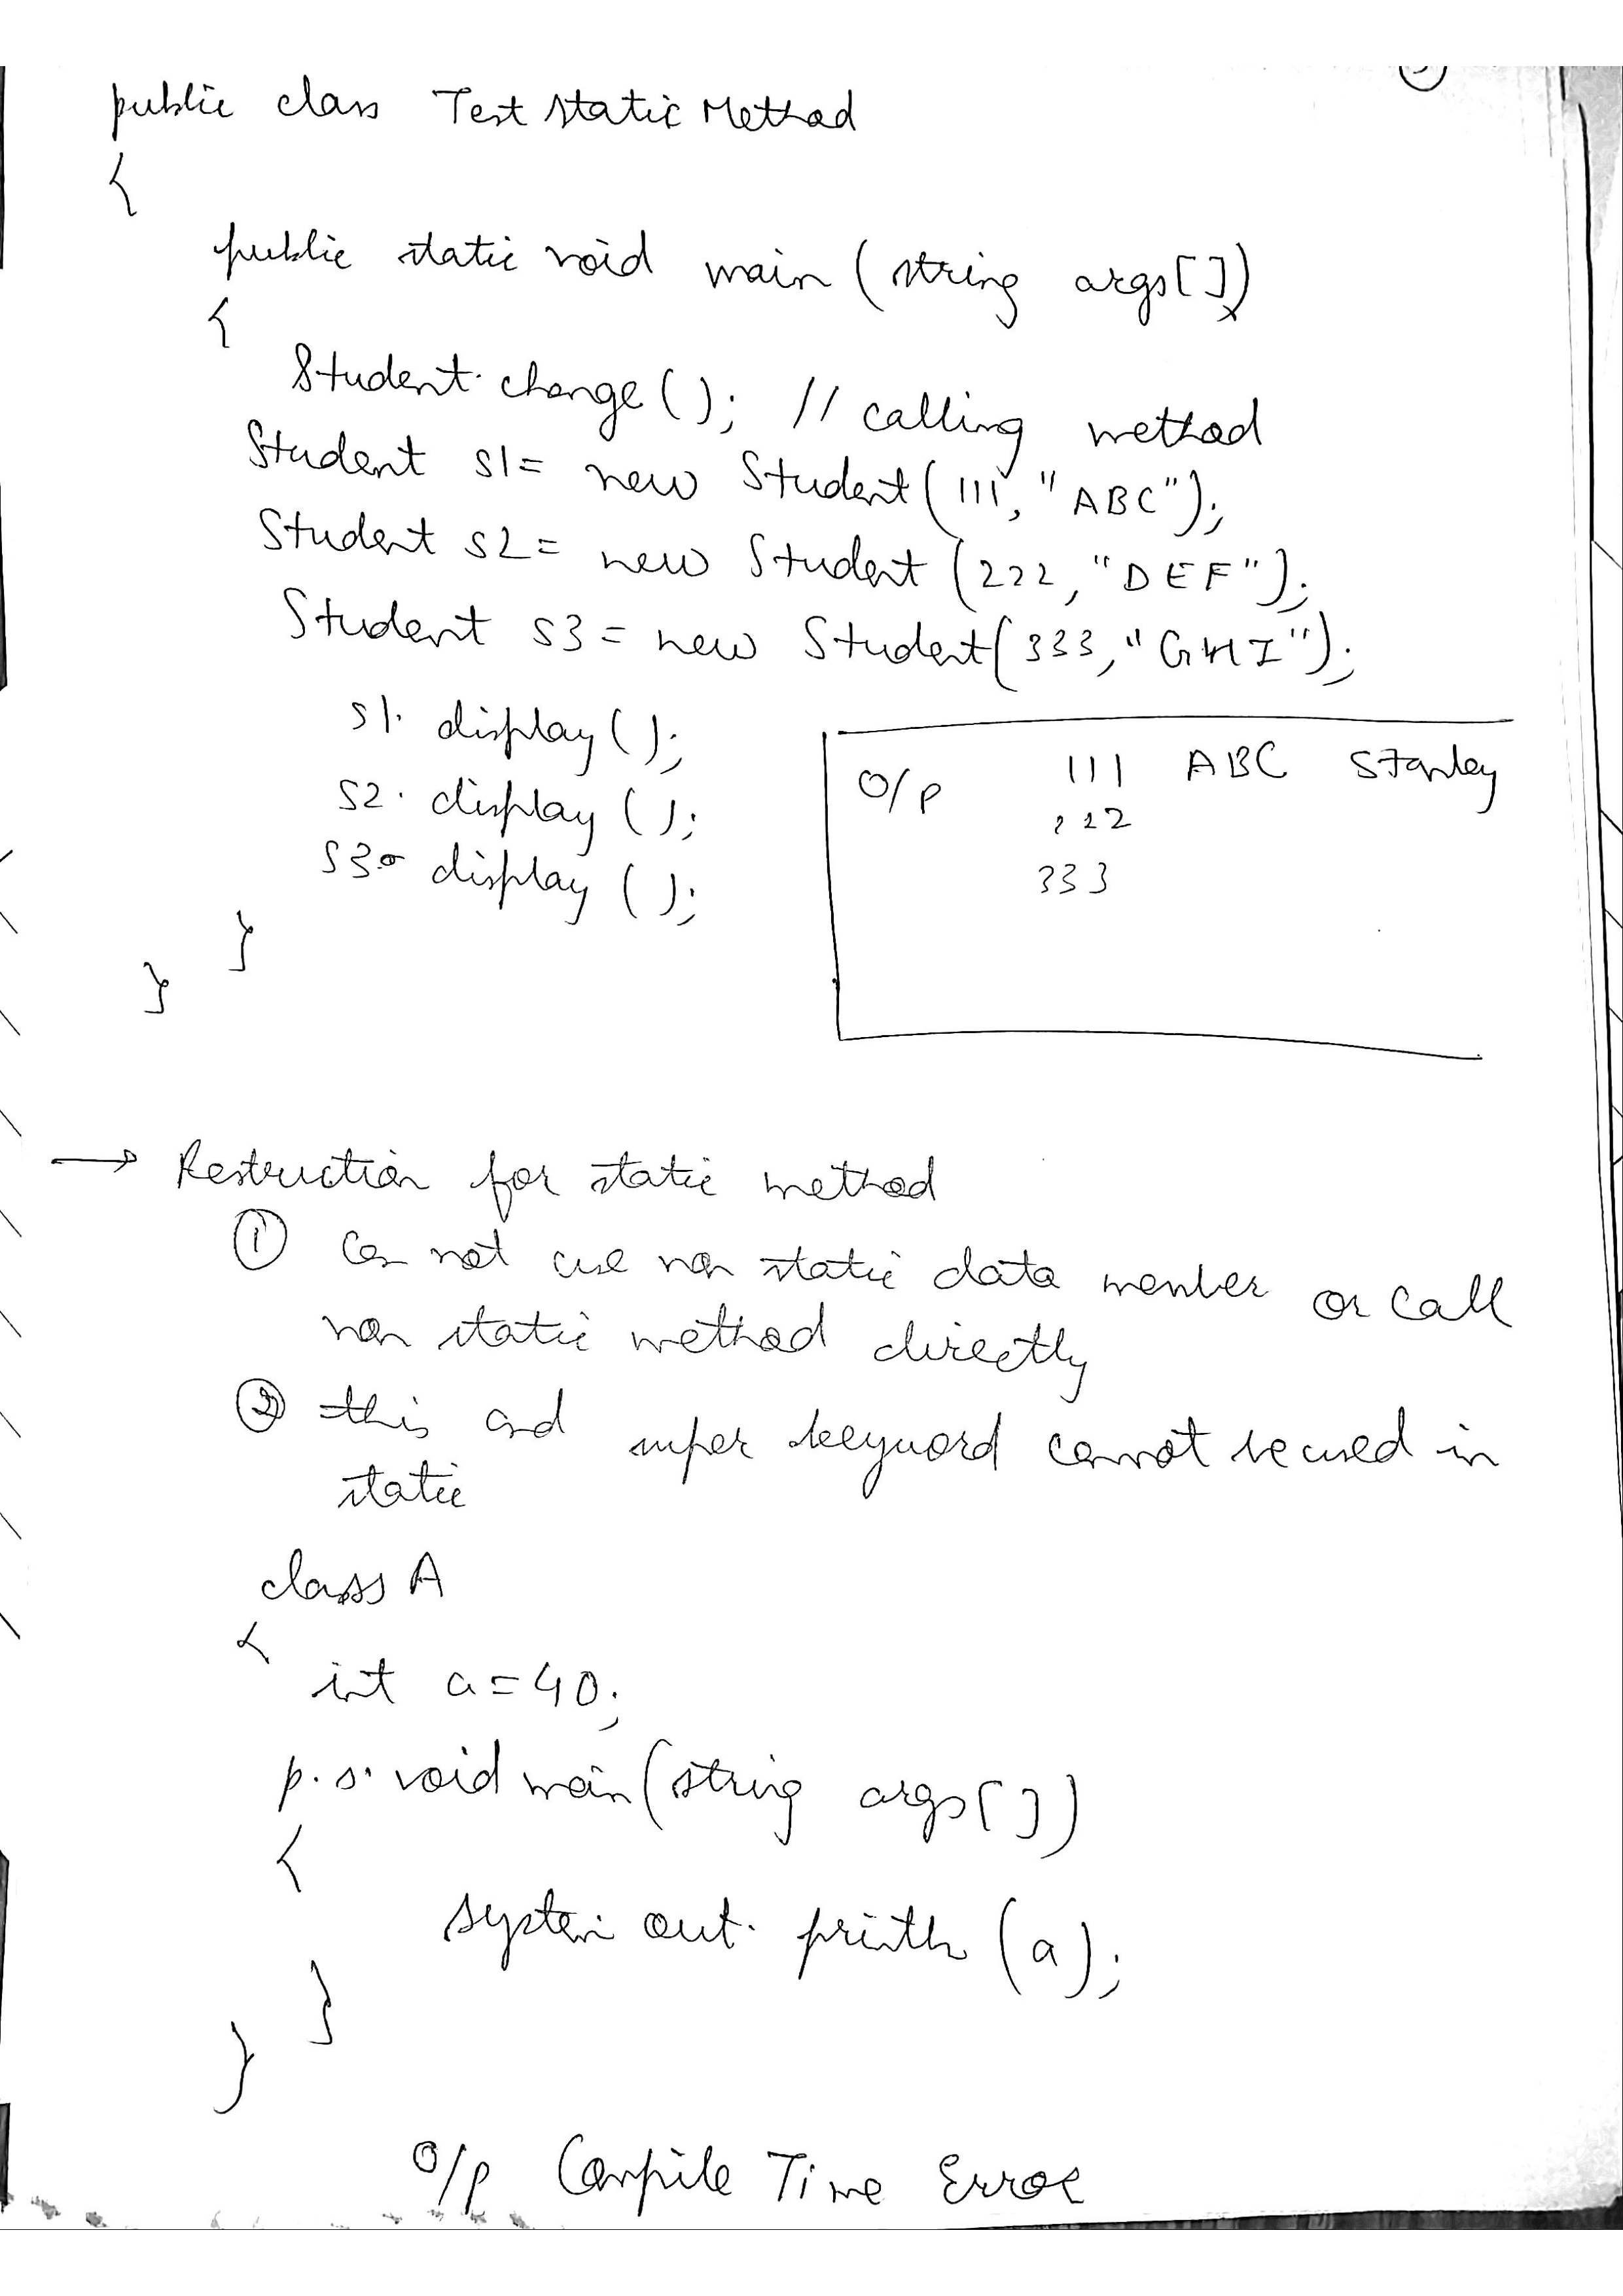 public class Test static Method
{
public static void main (string args[])
{
Student. change(); // calling method
Student s1= new Student(111, "ABC");
Student s2= new Student (222, "DEF");
Student s3= new Student(333, "GHI");
s1. display();
s2. display ();
s3. display ();
}
}
O/p 111 ABC Stanley
222
333
→ Restruction for static method
① Can not use non static data member or call
non static method directly
② this and super keyword cannot be used in
static
class A
{
int a=40;
p. s. void main(string args[])
{
system out. println (a);
}
}
O/p Compile Time Error